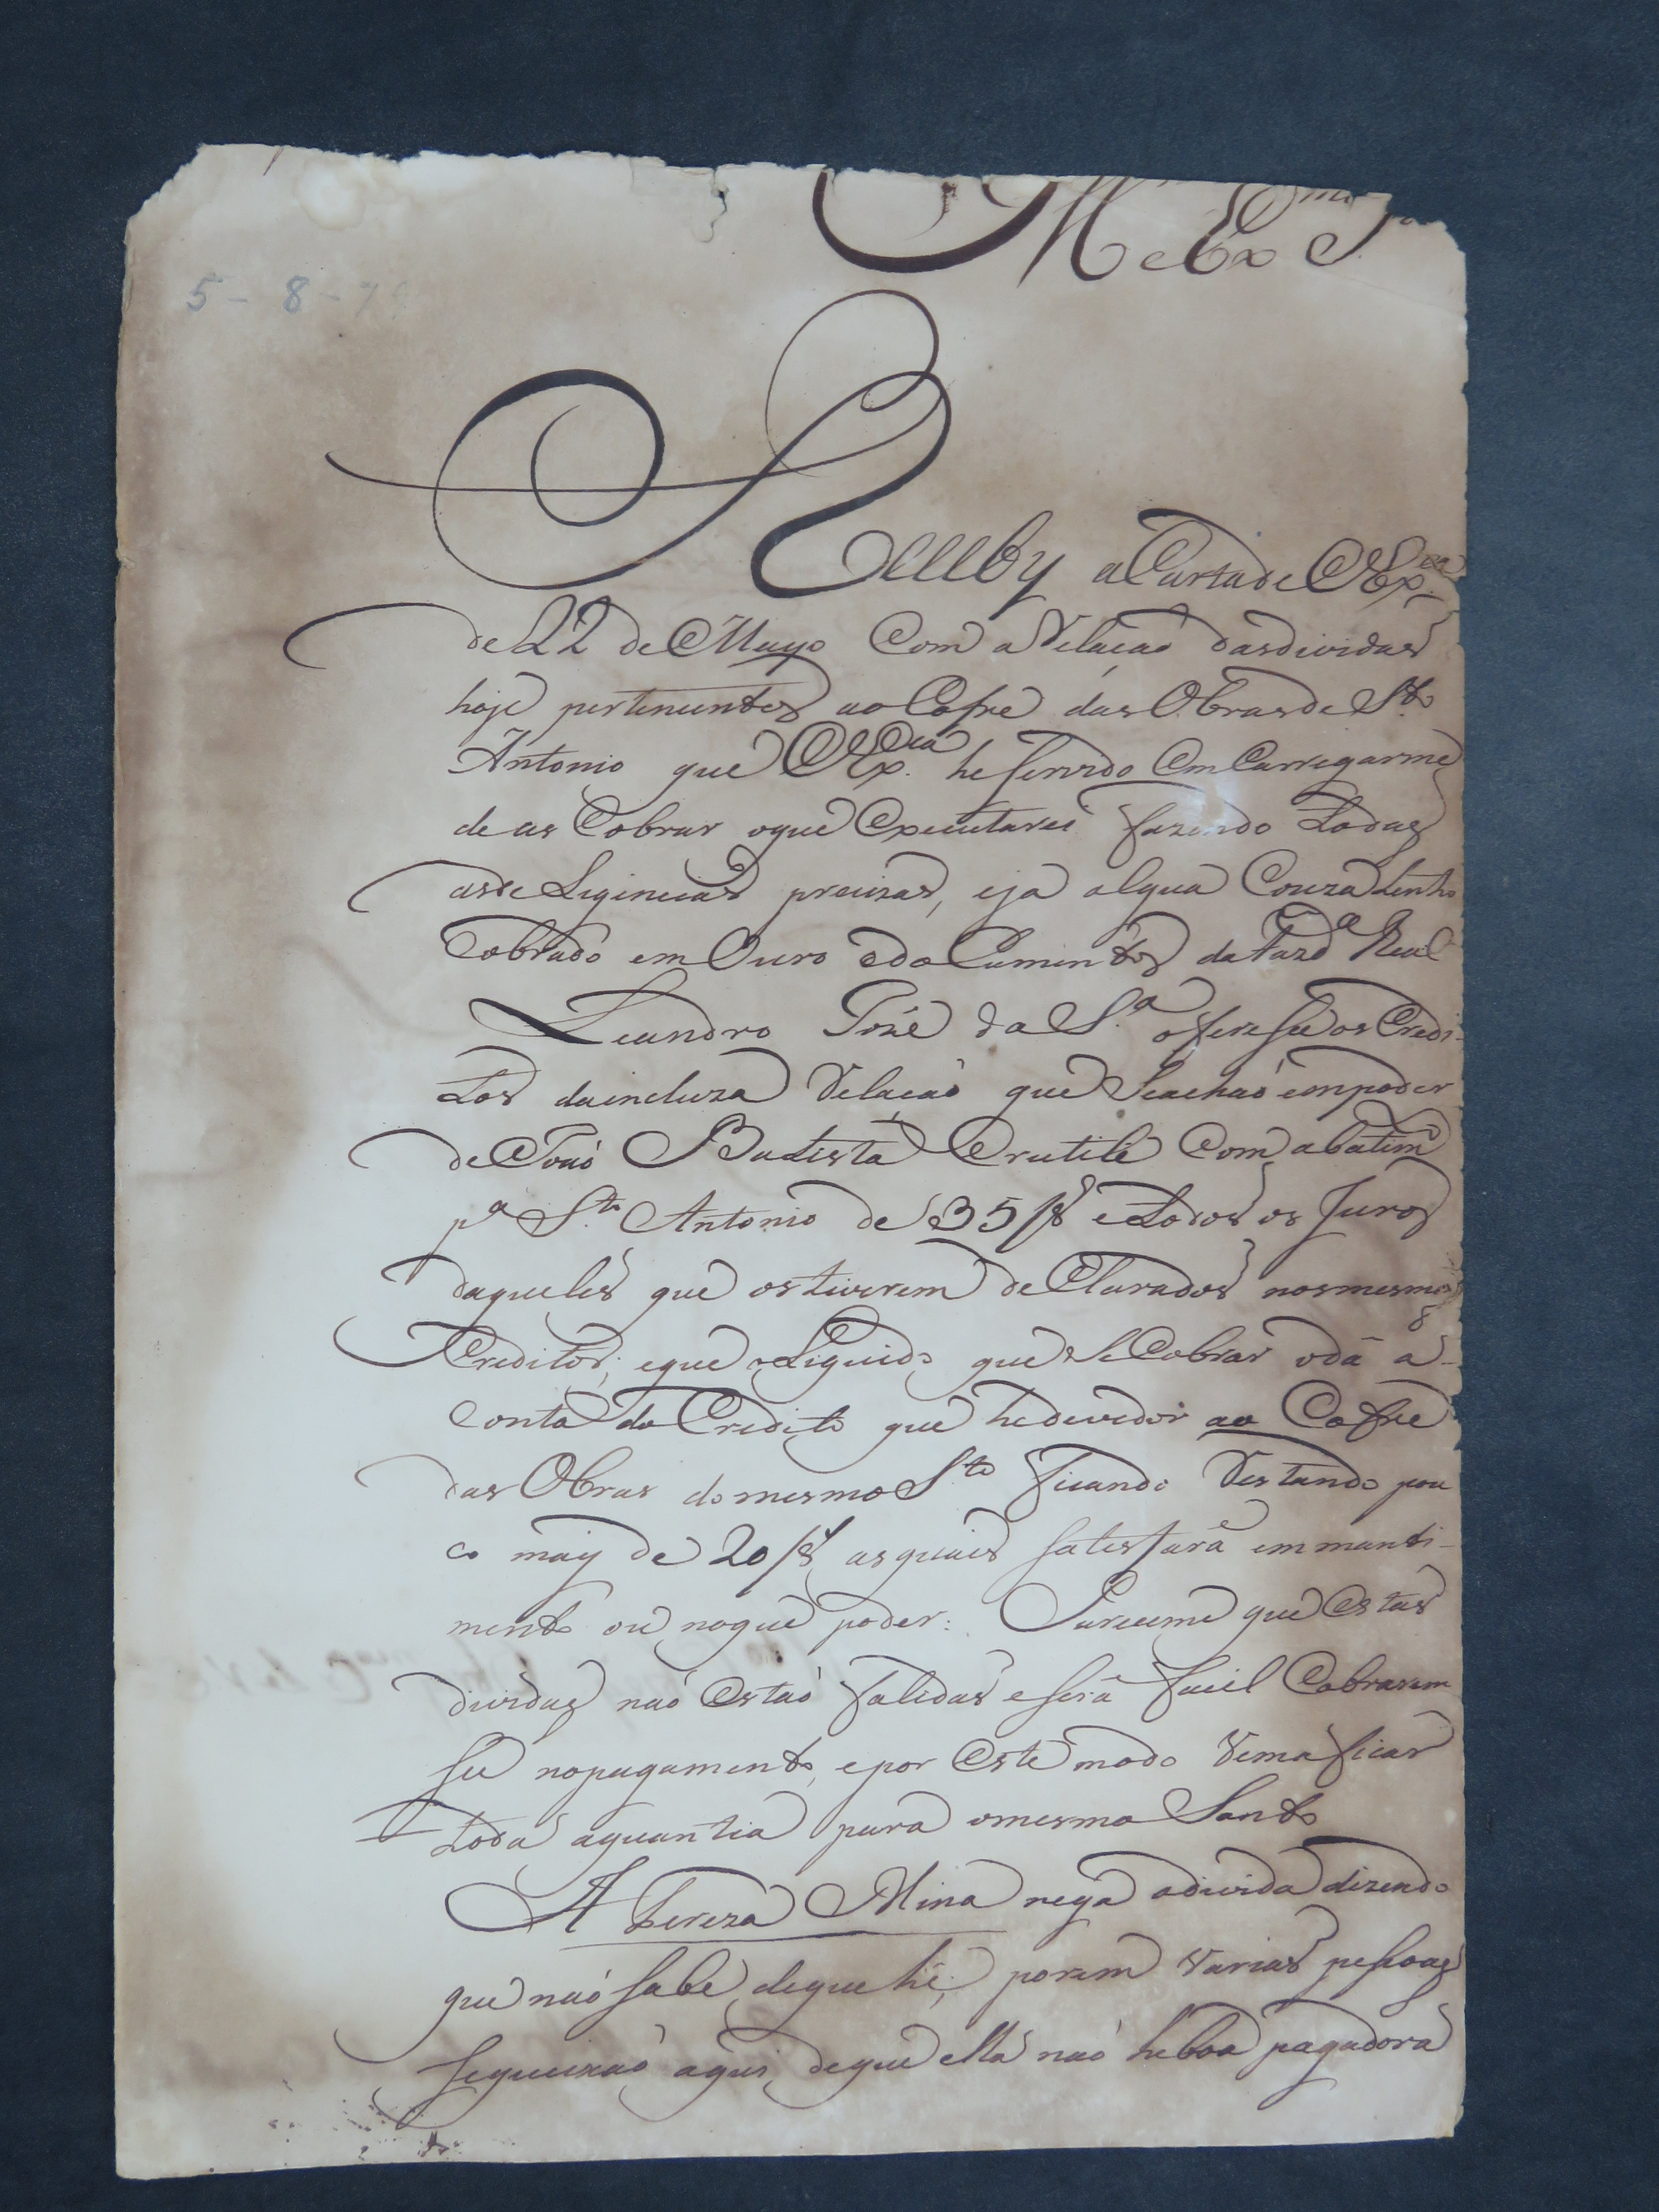 5 - 8 - 7
Recebÿ a Carta de VEx.cia
de 22 de Mayo Com a Relação das dividas
hoje pertencentes ao Cofre das Obras de S.to
Antonio que VEx.cia he servido Em Carregarme
de as Cobrar o que Executarei fazendo todas
as de Ligincias precizas, e ja algua Couza tenho
Cobrado em Ouro e do Cumentos da Fazd.a Real
Leandro José da S.a oferese os Credi-
tos da incluza Relação que Se achão em poder
de João Batista Crutile Com abatim.to
p.a S.to Antonio de 35/8 e todos os Juros
daqueles que os tiverem de Clarados nos mesmos
Creditos; e que o Liquido que Se Cobrar o dá a
conta do Credito que he devedor ao Cofre
das Obras do mesmo S.to ficando Restando pou
co may de 20/8 as quais satesfará em manti-
mento ou no que poder: Pareceme que Estas
dividas não Estão falidas e será facil Cobraram
se no pagamento, e por Este modo Vem a ficar
toda a quantia para o mesmo Santo
A Tereza Mina nega a divida dizendo
que não sabe de que hé, porem varias pessoas
se queixão aqui, de que ella não he boa pagadora